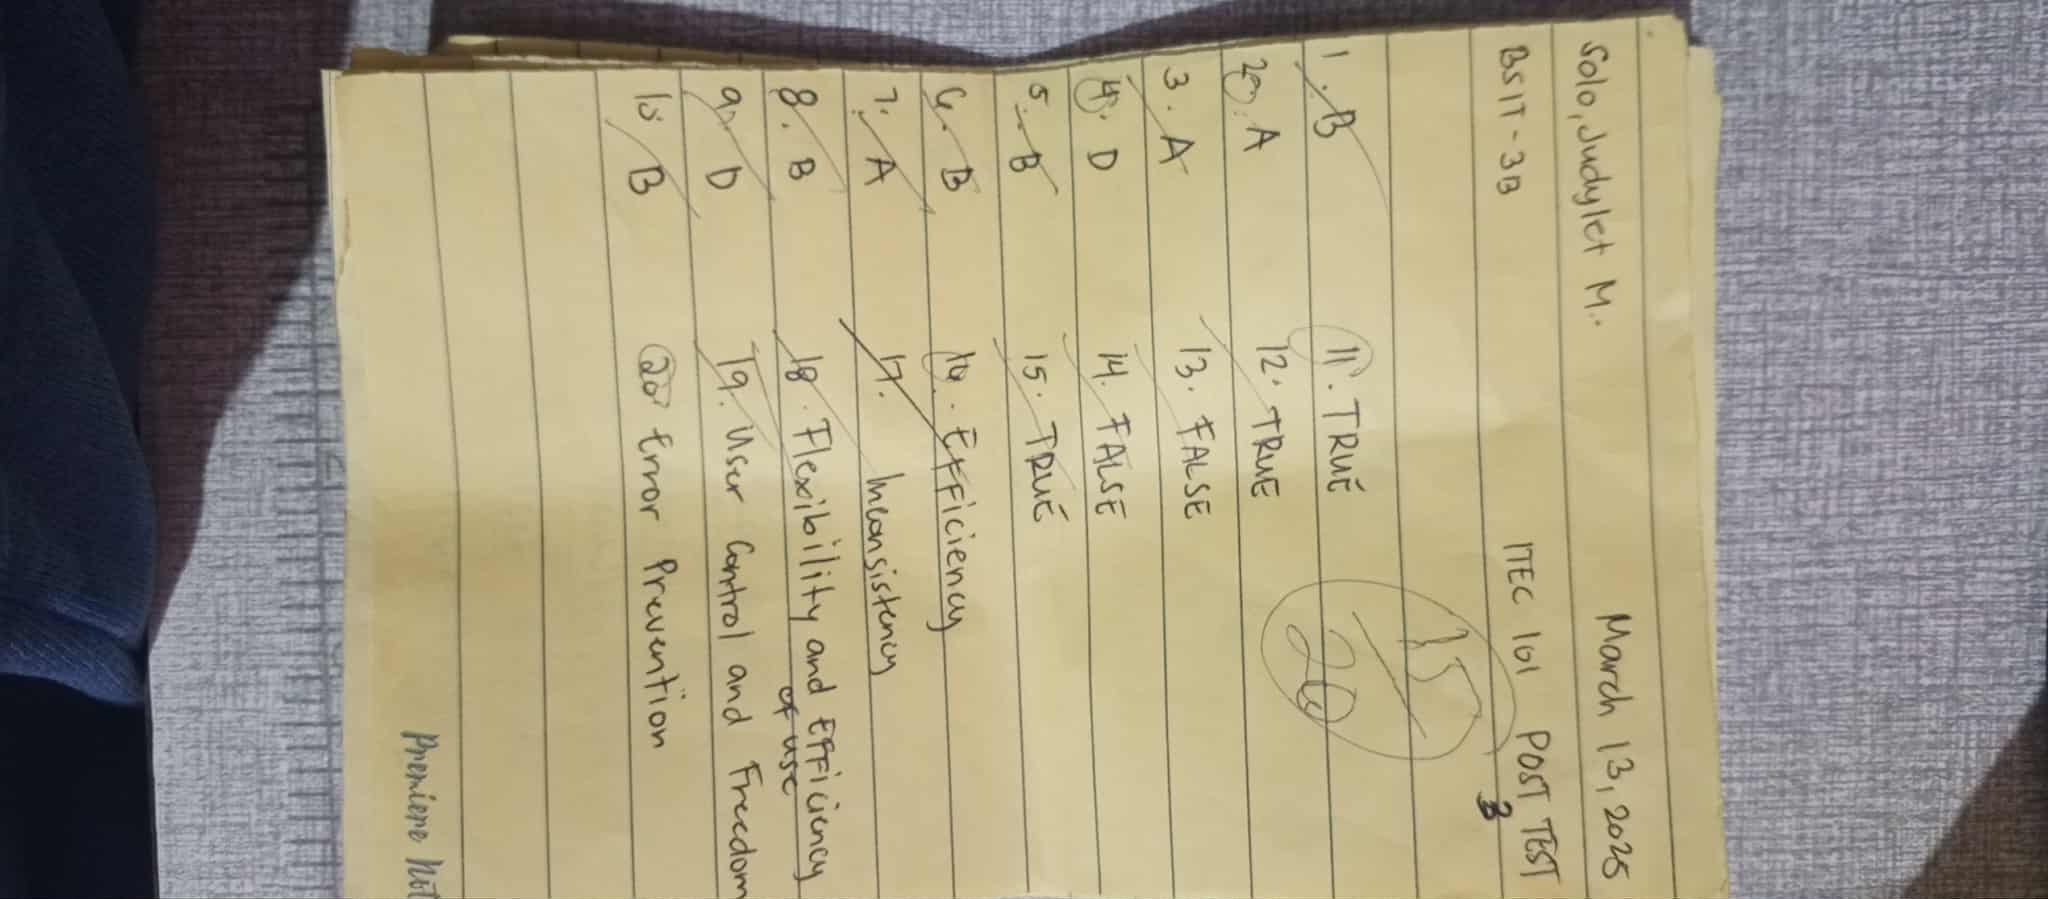 Solo, Judylet M. March 13, 2025
BSIT - 3B ITEC 101 POST TEST
3
15
20
1. B 11. TRUE
2. A 12. TRUE
3. A 13. FALSE
4. D 14. FALSE
5. B 15. TRUE
6. B 16. Efficiency
7. A 17. Inconsistency
8. B 18. Flexibility and Efficiency
of use
9. D 19. User Control and Freedom
10. B 20. Error Prevention
Premiere